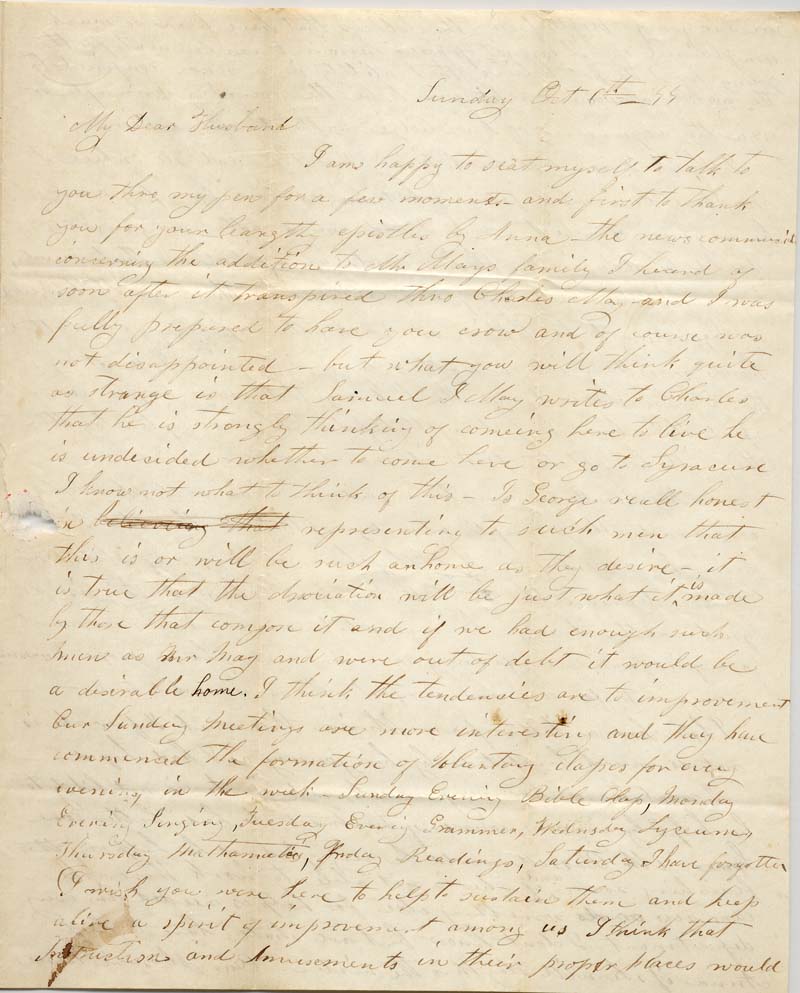 Sunday Oct 6th 44
My Dear Husband
I am happy to seat myself to talk to
you thro my pen for a few moments - and first to thank
you for your length epistles by Anna - the news
concerning the addition to Mr Mays family I heard of
soon after it transpired thro Charles May and I was
fully prepared to have you crow and of course was
not disappointed - but what you will think quite
as strange is that Samuel J May writes to Charles
that he is strongly thinking of comeing here to live he
is undesided whether to come here or go to Syracuse
I know not what to think of this - Is George reall honest
in believing that representing to such men that
this is or will be such an home as they desire - it
is true that the association will be just what it is made
by those that compose it and if we had enough such
men as Mr May and were out of debt it would be
a desirable home. I think the tendensies are to improvement
Our Sunday meetings are more interesting and they have
commenced the formation of voluntary classes for every
evening in the week - Sunday Evening Bible Class, Monday
Evening Singing, Tuesday Evenig Grammer, Wednsday Lyceum,
Thursday Mathamatics, Friday Readings, Saturday I have forgotten
I wish you were here to help to sustain them and keep
alive a spirit of improvement among us I think that
Instruction and Amusements in their proper places would